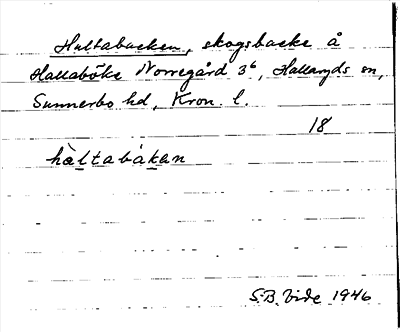 Hultabacken, skogsbacke å
Hallaböke Norregård 3⁶, Hallaryds sn,
Sunnerbo hd, Kron. l.
18
hàltabákan
S.B. Vide 1946